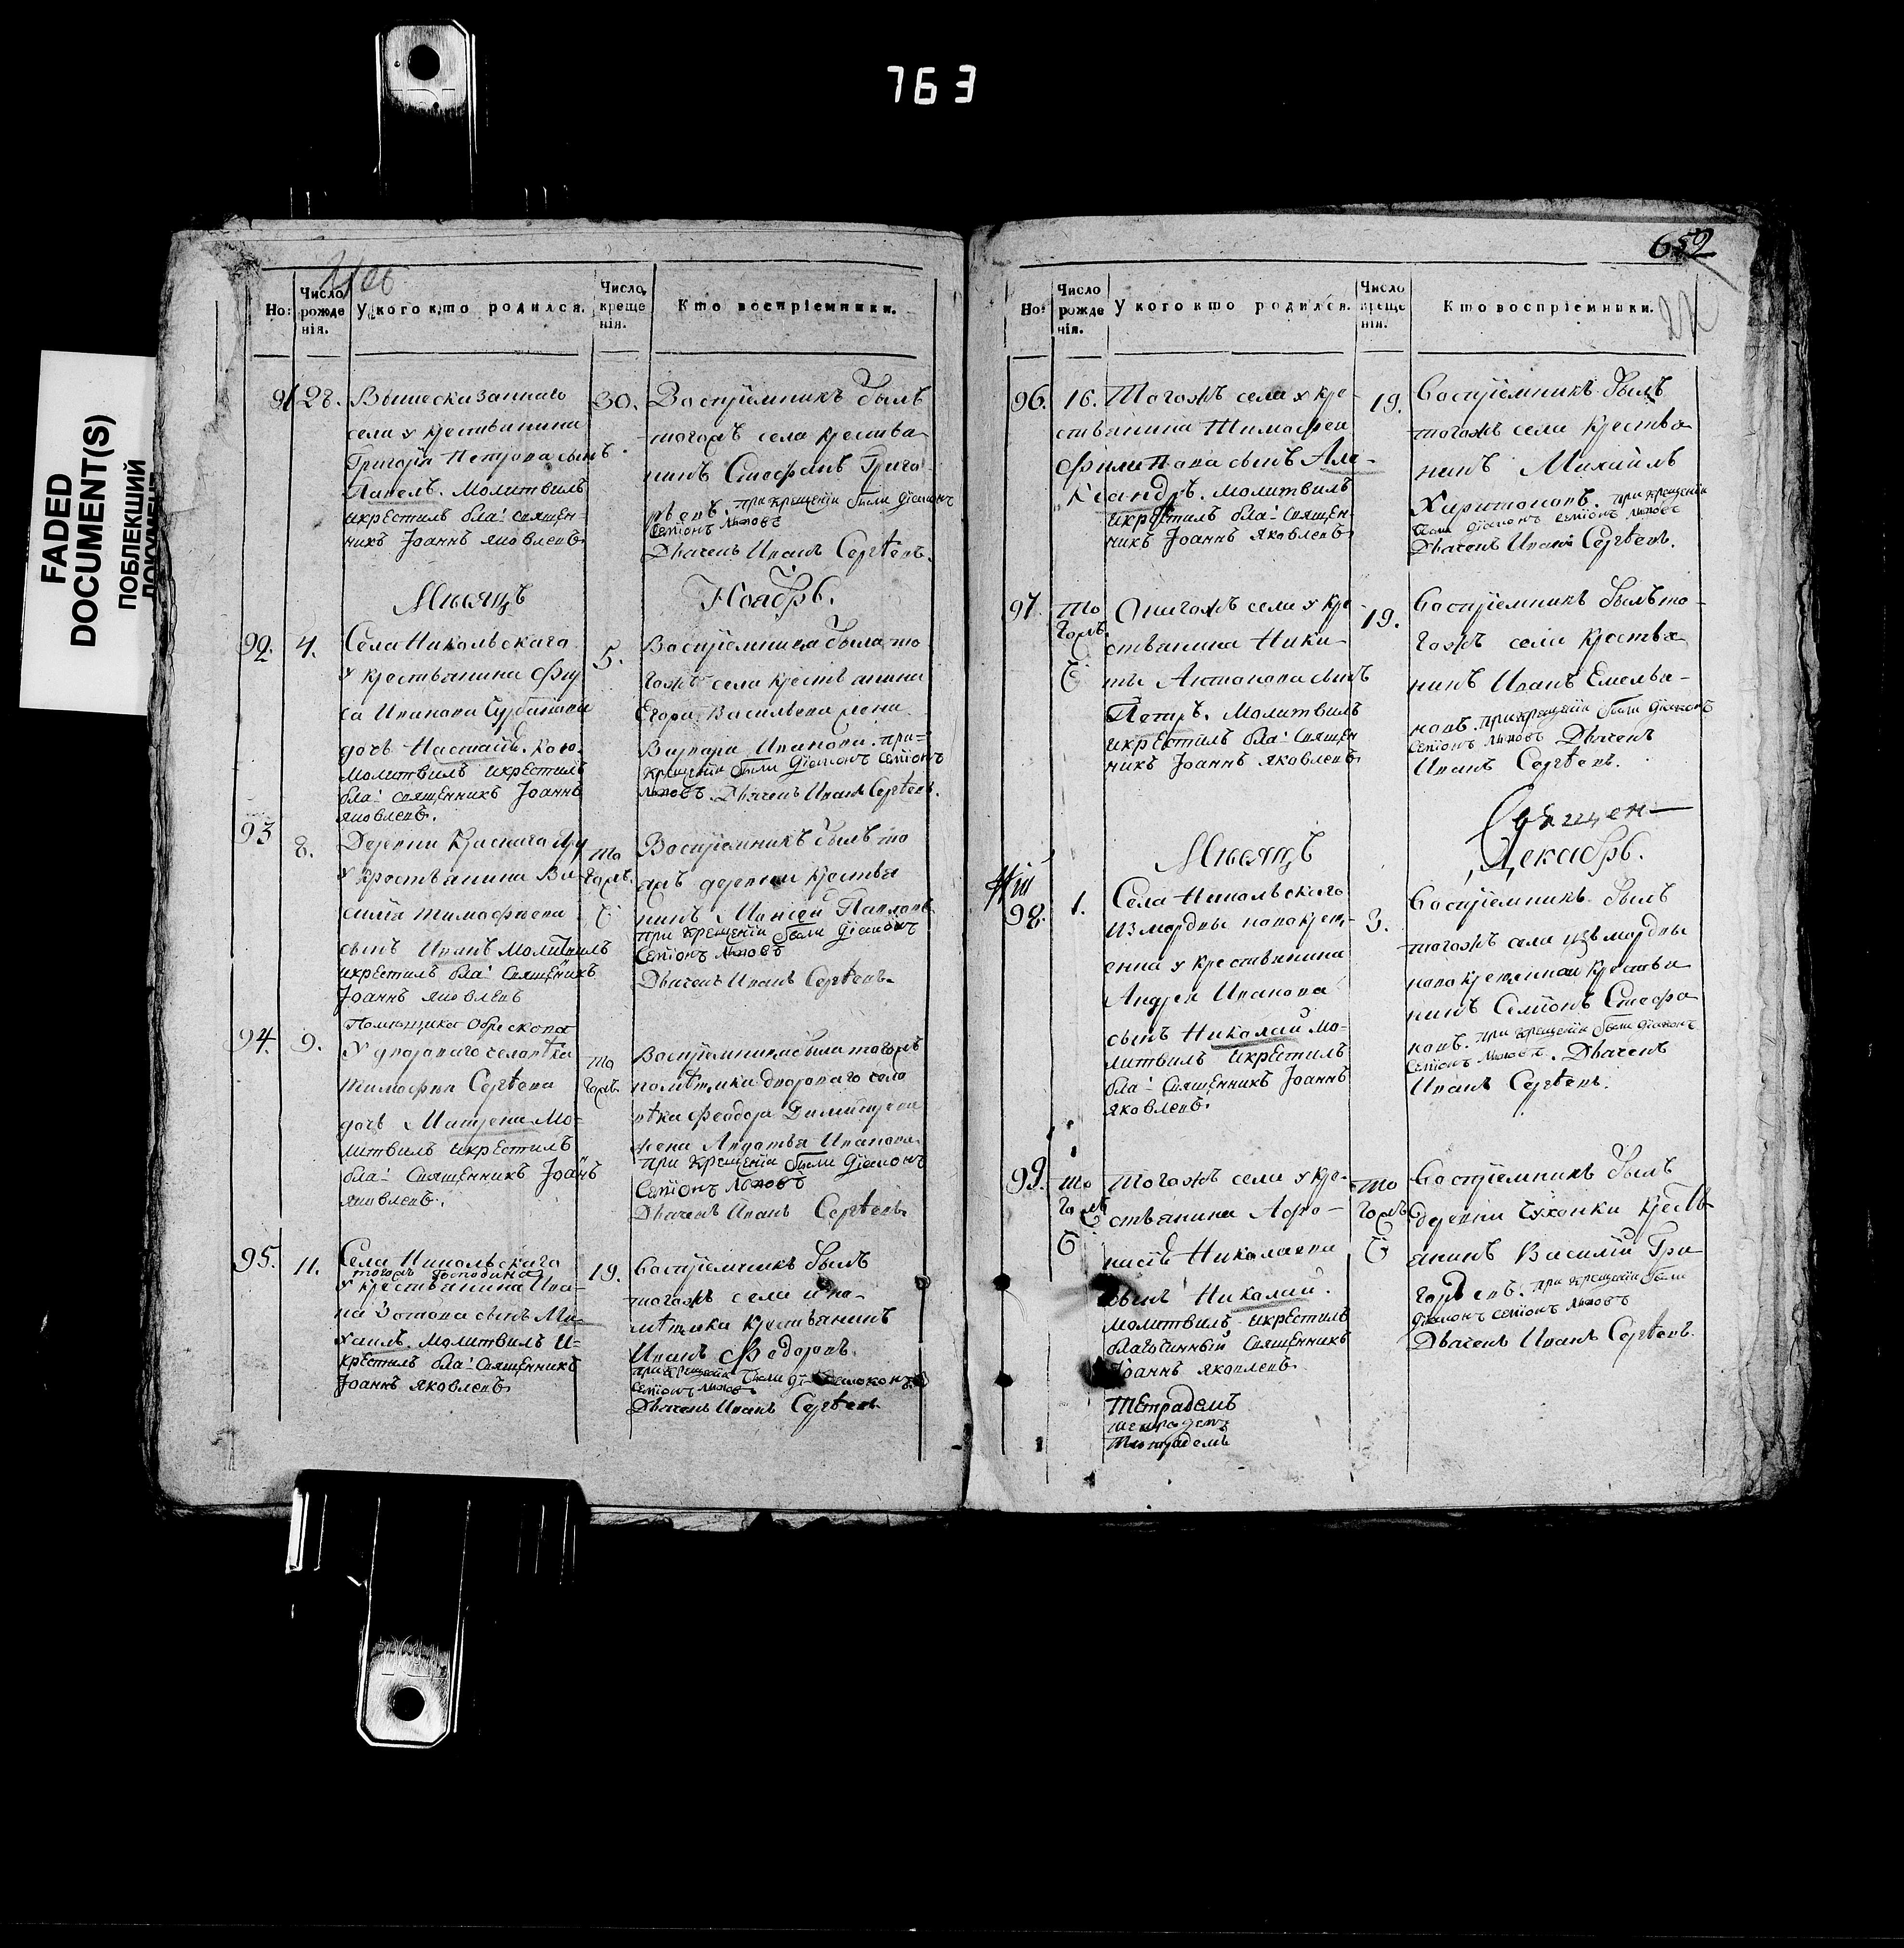 763
FADED
DOCUMENT(S)
ПОБЛЕКШИЙ
ДОКУМЕНТ
Но: Число рожденія. У кого кто родился. Число крещенія. Кто воспріемники.
91 28. Вышесказаннаго
села у крестьянина
Григорія Петрова сынъ
Павелъ. Молитвилъ
икрестилъ бла: священ-
никъ Іоаннъ яковлевъ
30. Воспріемникъ былъ
тогожъ села крестья
нинъ Стефанъ Григо
рьевъ. при крещеніи были діаконъ
Семіонъ
Дьячекъ Иванъ Сергѣевъ.
Мѣсяцъ Ноябрь.
92. 4. Села Никольскаго
у крестьянина Фир
са Иванова
дочь Настасья.
Молитвилъ икрестилъ
бла: священникъ Іоаннъ
яковлевъ.
5. Воспріемница была то
гожъ села крестьянина
Егора Васильева жена
Варвара Иванова. при-
крещеніи были діаконъ Семіонъ
Дьячекъ Иванъ Сергѣевъ.
93 8. Деревни Краснаго
у крестьянина Ва-
силья тимофѣева
сынъ Иванъ Молитвилъ
икрестилъ бла: Священикъ
Іоаннъ яковлевъ
то
гожъ.
Воспріемникъ былъ то
яжъ деревни крестья
нинъ Моисей Павловъ
при крещеніи были діаконъ
Семіонъ
Дьячекъ Иванъ Сергѣевъ.
94. 9. Помѣщика Обрескова
у двороваго человѣка
тимофѣя Сергѣева
дочь Матрена Мо-
литвилъ икрестилъ
бла: Священникъ Іоанъ
яковлевъ.
то
гожъ
Воспріемницею была тогожъ
помѣщика двороваго чело
вѣка Феодора Димитрева
жена Авдотья Иванова
при крещеніи были діаконъ
Семіонъ
Дьячекъ Иванъ Сергѣевъ
95. 11. Села Никольскаго
тогожъ господина
у крестьянина Ива-
на Зотова сынъ Ми-
хаилъ. Молитвилъ и-
крестилъ бла: Священникъ
Іоаннъ яковлевъ
19. Воспріемникъ былъ
тогожъ села и по-
мѣщика крестьянинъ
Иванъ Федоровъ.
при крещеніи были діаконъ
Семіонъ
Дьячекъ Иванъ Сергѣевъ
652
Но: Число рожденія. У кого кто родился. Число крещенія. Кто воспріемники.
96. 16. Тогожъ села у кре-
стьянина Тимофея
Филипова сынъ Але-
ксандръ. Молитвилъ
икрестилъ бла: Священ
никъ Іоаннъ яковлевъ
19. Воспріемникъ былъ
тогожъ села крестья
нинъ Михайлъ
Харитоновъ. при крещеніи
были діаконъ Семіонъ
Дьячекъ Иванъ Сергѣевъ.
97. То
гожъ
Онагожъ села у кре-
стьянина Ники-
ты Антонова сынъ
Петръ. Молитвилъ
икрестилъ бла: Священ
никъ Іоаннъ яковлевъ
19. Воспріемникъ былъ то-
гожъ села крестья
нинъ Иванъ Емелья-
новъ. при крещеніи были діаконъ
Семіонъ Дьячекъ
Иванъ Сергѣевъ.
Мѣсяцъ Декабрь.
98. 1. Села Никольскаго
из мордвы новокрещ-
енна у крестьянина
Андрея Иванова
сынъ Николай Мо-
литвилъ икрестилъ
бла: Священникъ Іоаннъ
яковлевъ.
3. Воспріемникъ былъ
тогожъ села изъ мордвы
новокрещенной крестья
нинъ Семіонъ Стефа
новъ. при крещеніи были діаконъ
Семіонъ Дьячекъ
Иванъ Сергѣевъ.
99. То
гожъ
Тогожъ села у кре-
стьянина Афо-
насія Николаева
сынъ Николай.
Молитвилъ икрестилъ
благочинный Священникъ
Іоаннъ яковлевъ.
То
гожъ
Воспріемникъ былъ
деревни кресть
янинъ Василій Гри
горьевъ. при крещеніи были
діаконъ Семіонъ
Дьячекъ Иванъ Сергѣевъ.